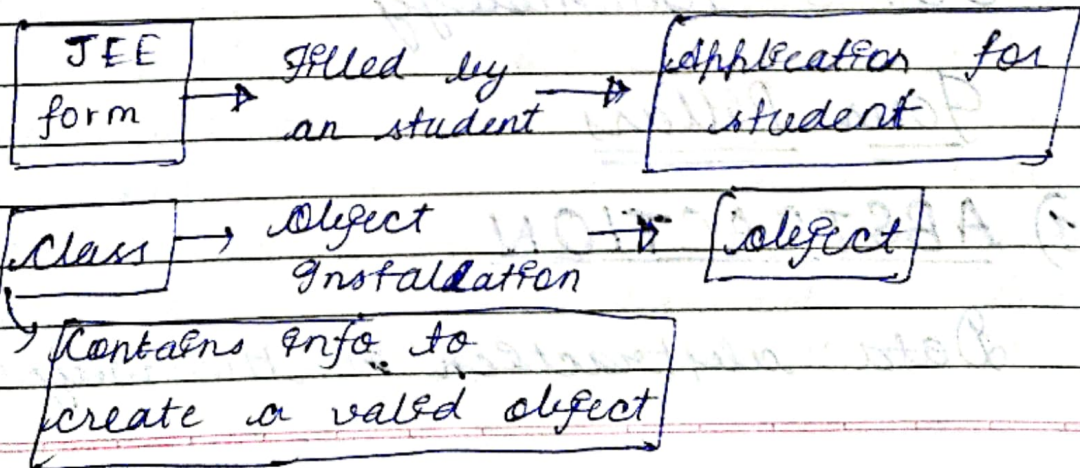 JEE
form
Filled by
an student
Application for
student
Class
Object
Installation
object
Contains info to
create a valid object